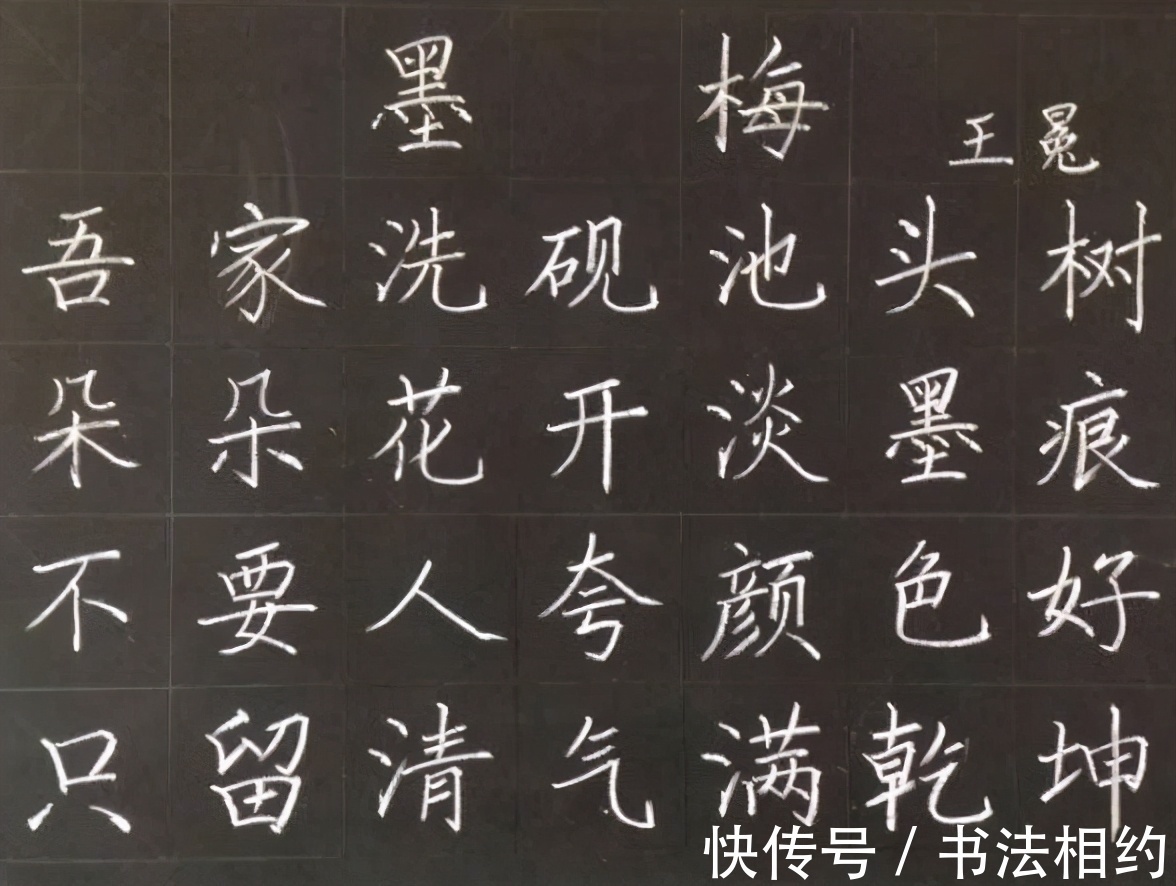 墨 梅 王冕
吾家洗砚池头树
朵朵花开淡墨痕
不要人夸颜色好
只留清气满乾坤
快传号 / 书法相约